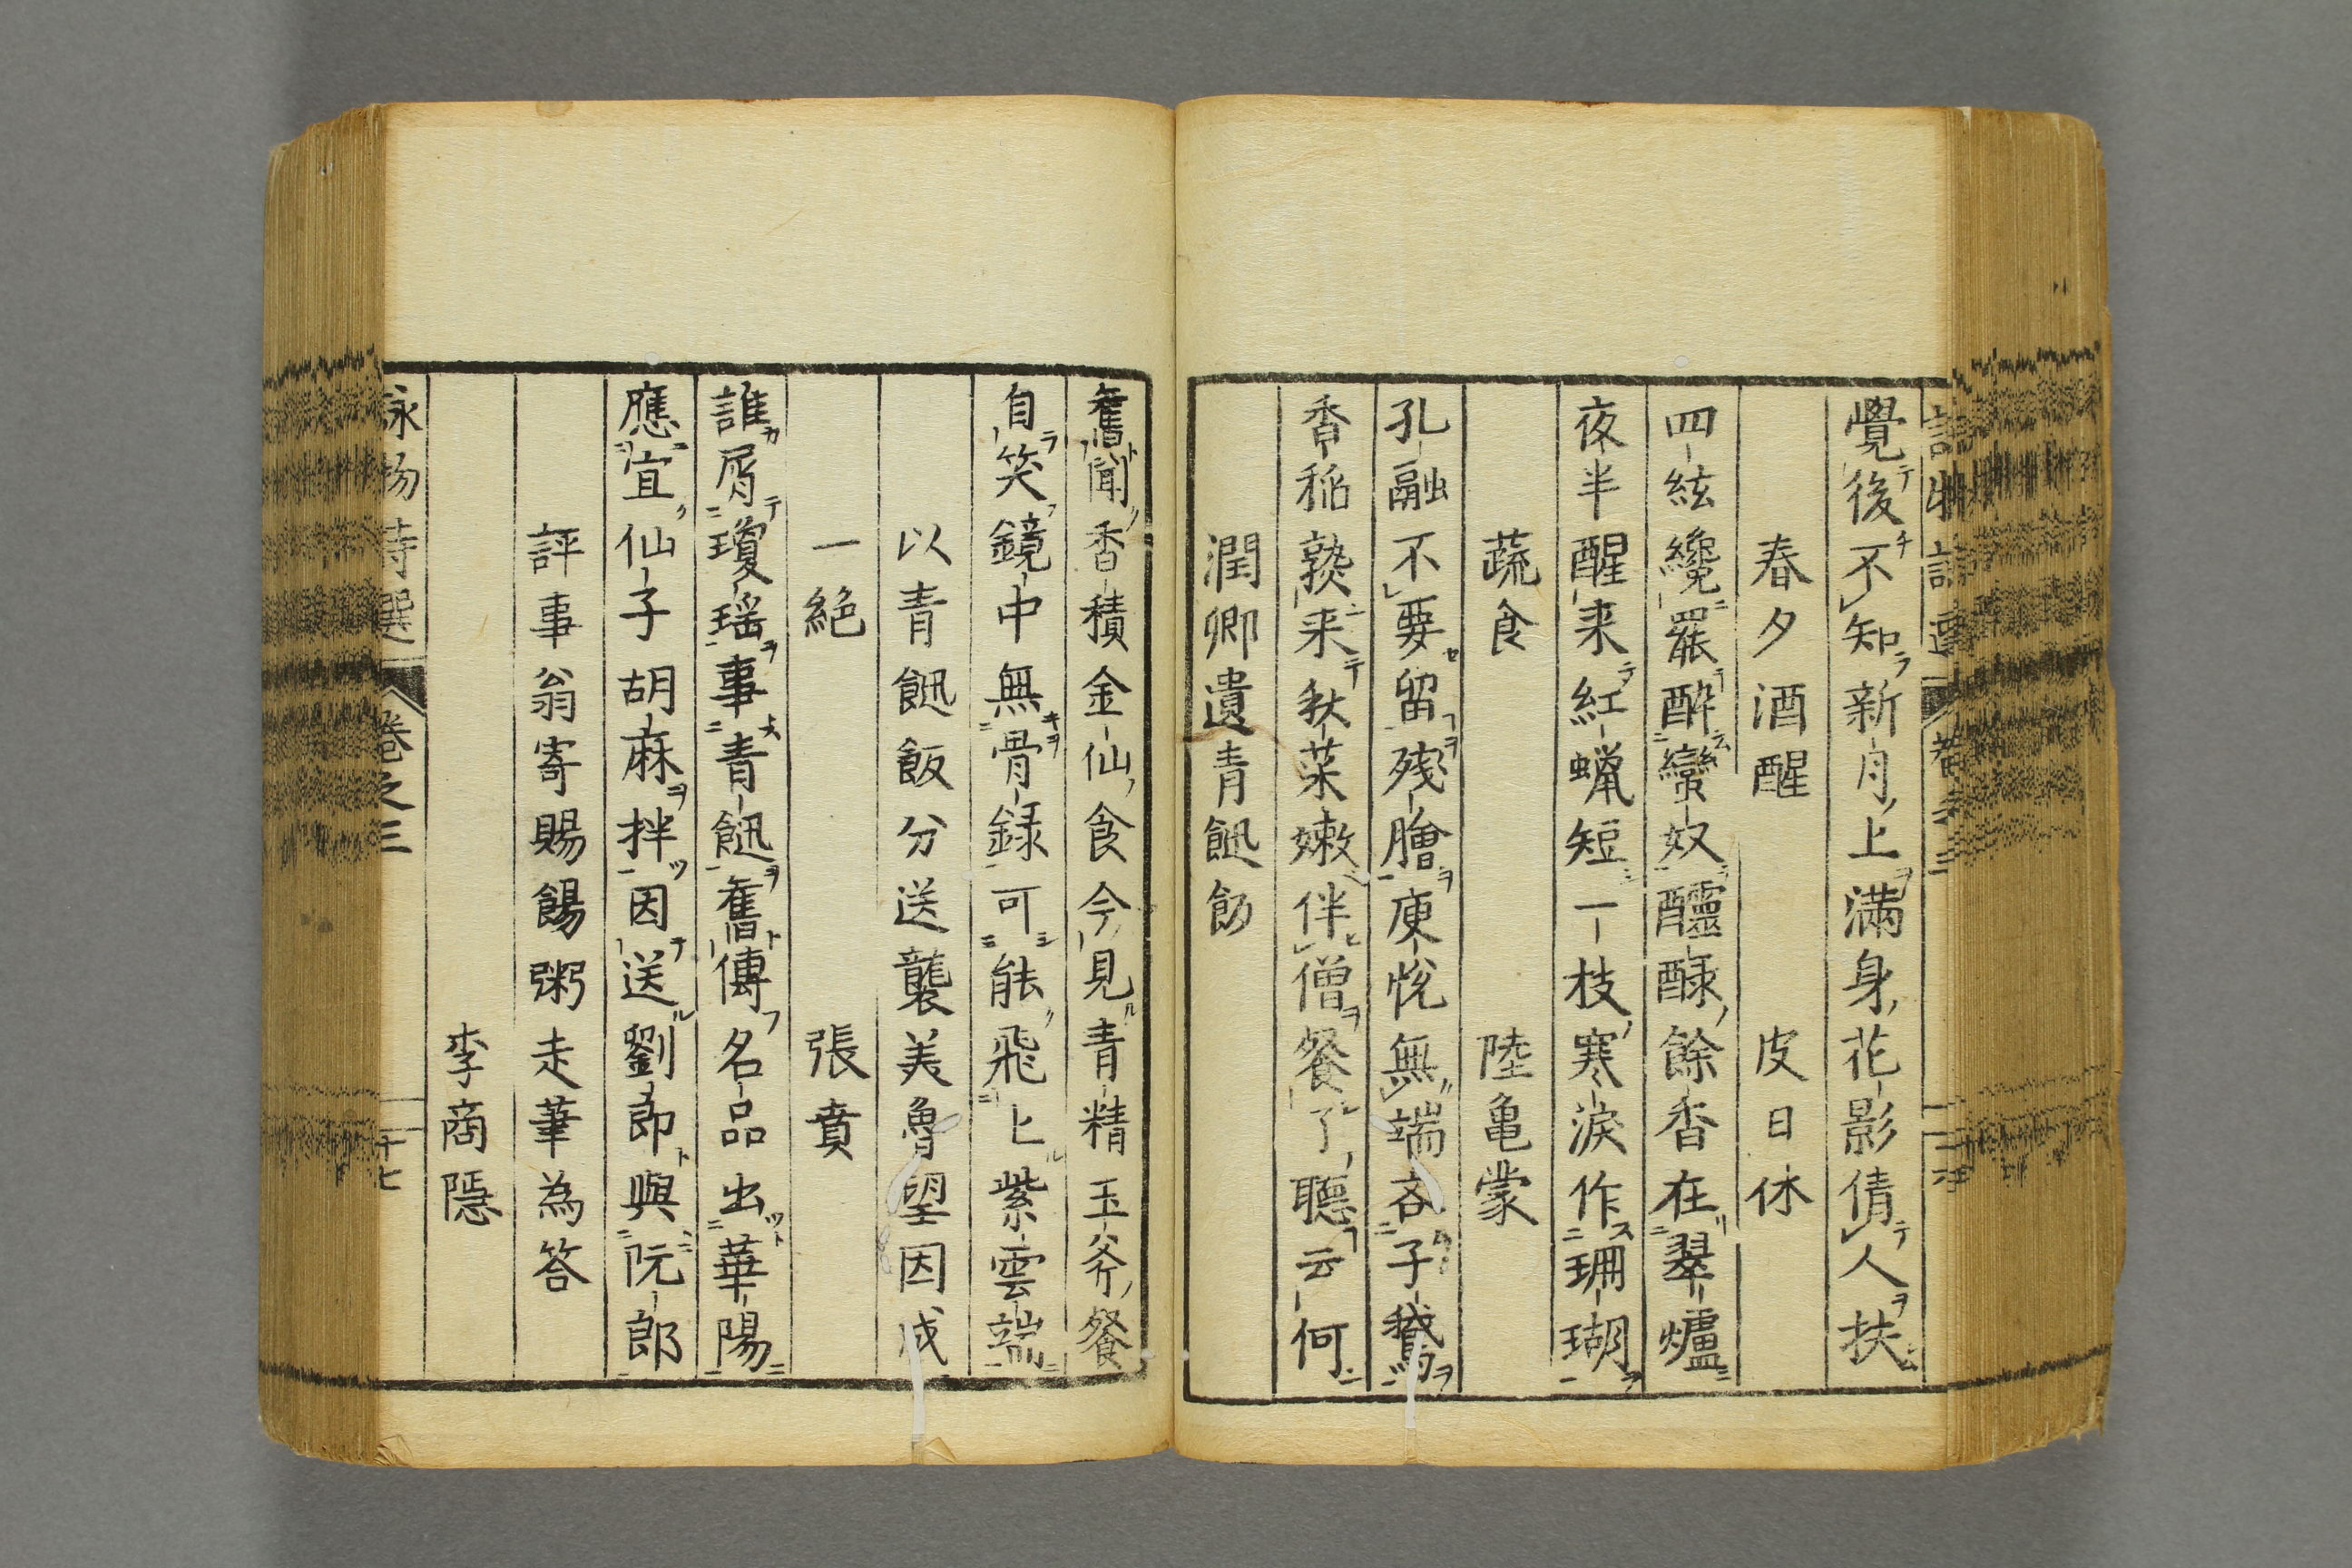 覺後不知新月上滿身花影倩人扶
春夕酒醒 皮日休
四絃纔罷醉蠻奴醽醁餘香在翠爐
夜半醒来紅蠟短一枝寒淚作珊瑚
蔬食 陸亀蒙
孔融不要留殘膾庾悅無端吝子鵝
香稲熟来秋菜嫩伴僧餐了聴云何
潤卿遺青䭀飯
舊聞香積金仙食今見青精玉斧餐
自笑鏡中無骨録可能飛上紫雲端
以青䭀飯分送襲美魯望因成
一絶 張賁
誰屑瓊瑶事青䭀舊傳名品出華陽
應宜仙子胡麻拌因送劉郎與阮郎
評事翁寄賜餳粥走筆為答
李商隠
詠物詩選 巻之三 十七